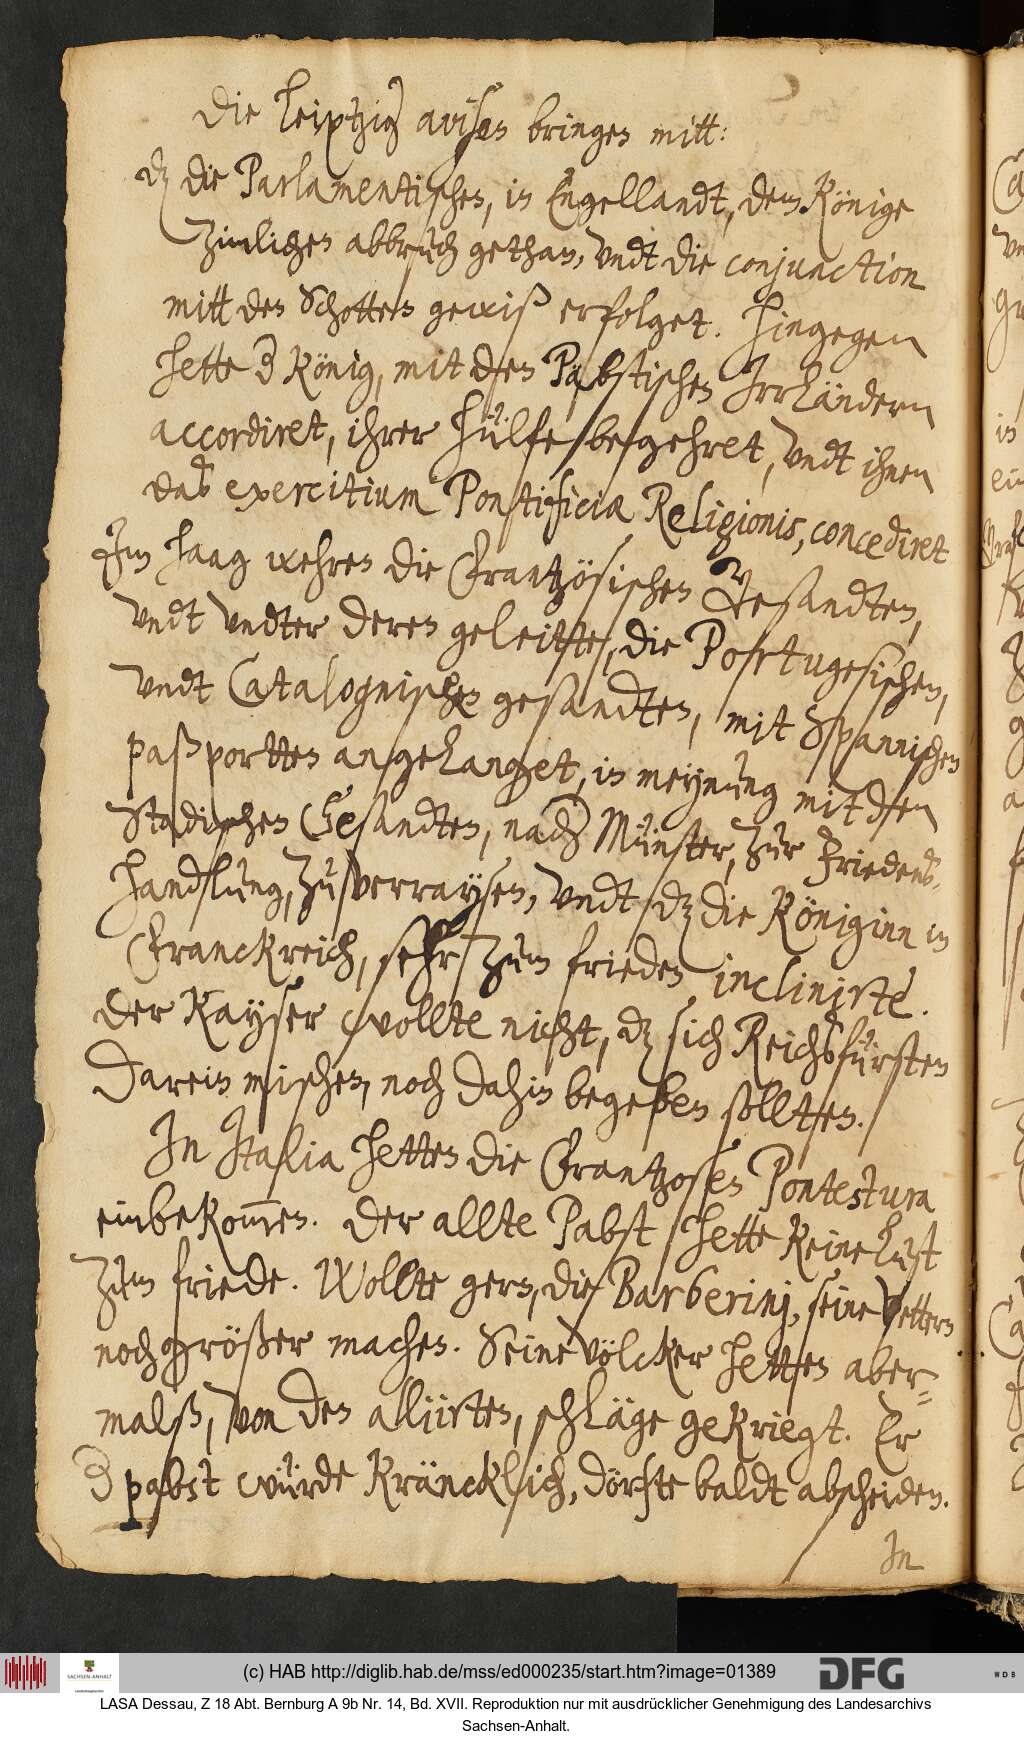 Die Leiptzig avisen bringen mitt:
dz die Parlamentischen, in Engellandt, dem Könige
zimlichen abbruch gethan, undt die conjunction
mitt den Schotten gewiß erfolget. Hingegen
hette der König, mit den Päbstischen Irrländern
accordiret, ihrer hülfe begehret, undt ihnen
daß exercitium Pontificiæ Religionis, concediret
Im Haag wehren die Frantzösischen Gesandten,
undt undter deren geleitte, die Portugesischen,
undt Catalognischen gesandten, mit Spannischen
paßportten angelanget, in meynung mit den
Stadischen Gesandten, nach Münster, zur Friedens-
handlung, zu verraysen, undt dz die Königinn in
Franckreich, sehr zum frieden inclinirte.
Der Kayser wollte nicht, dz sich Reichsfürsten
darein mischen, noch dahin begeben sollten.
In Italia hetten die Frantzosen Pontestura
einbekom̅en. Der allte Pabst hette keine lust
zum friede. Wollte gern, die Barberinj, seine Vettern
noch größer machen. Seine völcker hetten aber-
malß, von den alliirten, schläge gekriegt. Er
der pabst würde kräncklich, dörfte baldt abscheiden.
In
(c) HAB http://diglib.hab.de/mss/ed000235/start.htm?image=01389
SACHSEN-ANHALT
DFG
WDB
LASA Dessau, Z 18 Abt. Bernburg A 9b Nr. 14, Bd. XVII. Reproduktion nur mit ausdrücklicher Genehmigung des Landesarchivs
Sachsen-Anhalt.